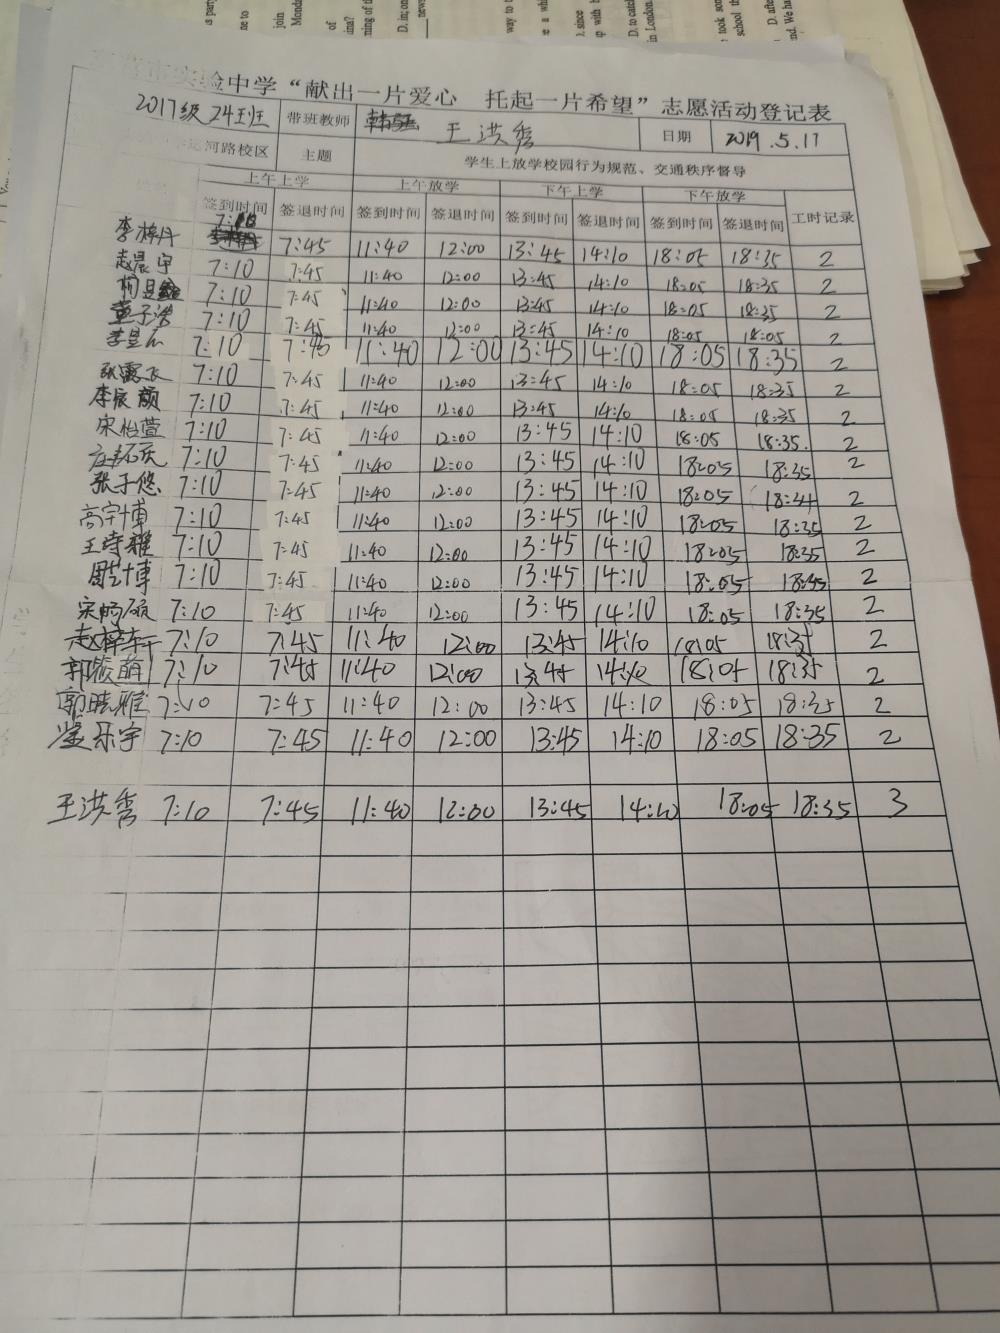 实验中学“献出一片爱心 托起一片希望”志愿活动登记表
2017级 24班 带班教师 王洪秀 日期 2019.5.17
运河路校区 主题 学生上放学校园行为规范、交通秩序督导
上午上学 上午放学 下午上学 下午放学
签到时间 签退时间 签到时间 签退时间 签到时间 签退时间 签到时间 签退时间 工时记录
李梓丹 7:10 7:45 11:40 12:00 13:45 14:10 18:05 18:35 2
赵晨宇 7:10 7:45 11:40 12:00 13:45 14:10 18:05 18:35 2
7:10 7:45 11:40 12:00 13:45 14:10 18:05 18:35 2
董子浩 7:10 7:45 11:40 12:00 13:45 14:10 18:05 18:05 2
7:10 7:45 11:40 12:00 13:45 14:10 18:05 18:35 2
7:10 7:45 11:40 12:00 13:45 14:10 18:05 18:35 2
李辰颜 7:10 7:45 11:40 12:00 13:45 14:10 18:05 18:35 2
宋怡萱 7:10 7:45 11:40 12:00 13:45 14:10 18:05 18:35. 2
7:10 7:45 11:40 12:00 13:45 14:10 18:05 18:35 2
张子悠 7:10 7:45 11:40 12:00 13:45 14:10 18:05 2
高宇博 7:10 7:45 11:40 12:00 13:45 14:10 18:05 18:35 2
王诗雅 7:10 7:45 11:40 12:00 13:45 14:10 18:05 18:35 2
7:10 7:45 11:40 12:00 13:45 14:10 18:05 2
7:10 7:45 11:40 12:00 13:45 14:10 18:05 18:35 2
7:10 7:45 11:40 12:00 13:45 14:10 18:05 18:35 2
郭筱萌 7:10 7:45 11:40 12:00 13:45 14:10 18:05 18:35 2
郭晓雅 7:10 7:45 11:40 12:00 13:45 14:10 18:05 18:35 2
7:10 7:45 11:40 12:00 13:45 14:10 18:05 18:35 2
王洪秀 7:10 7:45 11:40 12:00 13:45 14:10 18:05 18:35 3